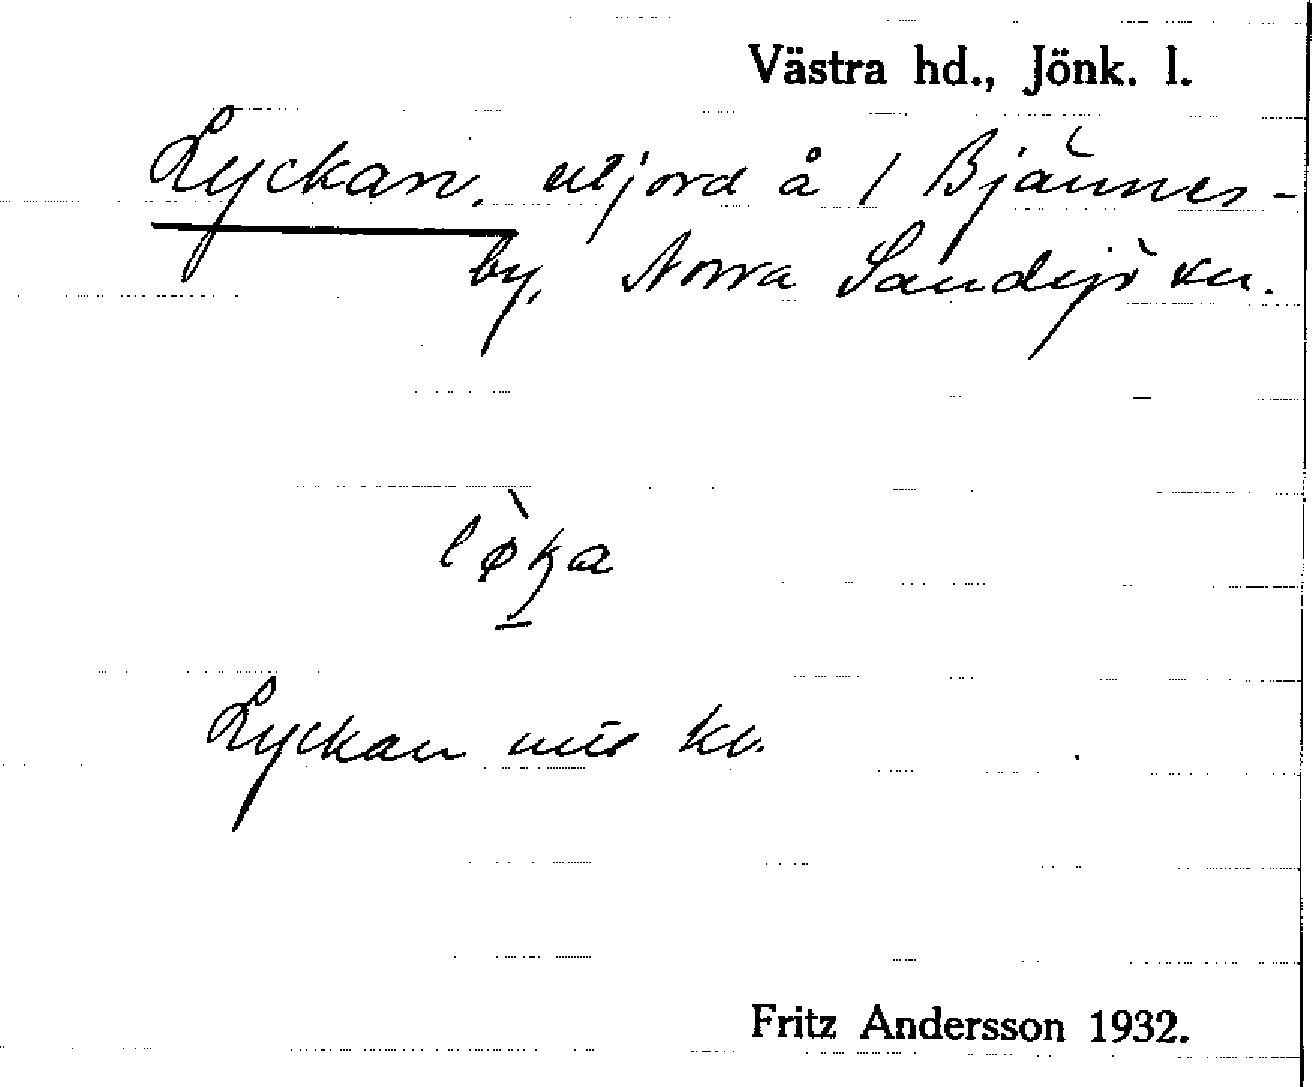 Västra hd., Jönk. l.
Lyckan, utjord å 1 Bjännes-
by, Norra Sandsjö sn.
lø̀ka
Lyckan
Fritz Andersson 1932.